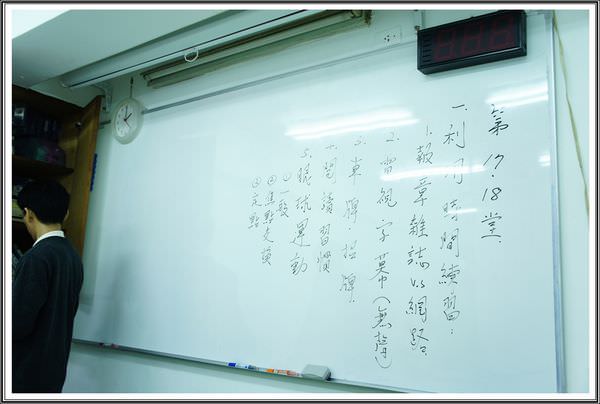 第17.18堂
一.利用時間練習:
1.報章雜誌v.s網路.
2.電視字幕(無聲)
3.車牌.招牌.
4.閱讀習慣
5.眼球運動
①一般
②焦點交換
③定點